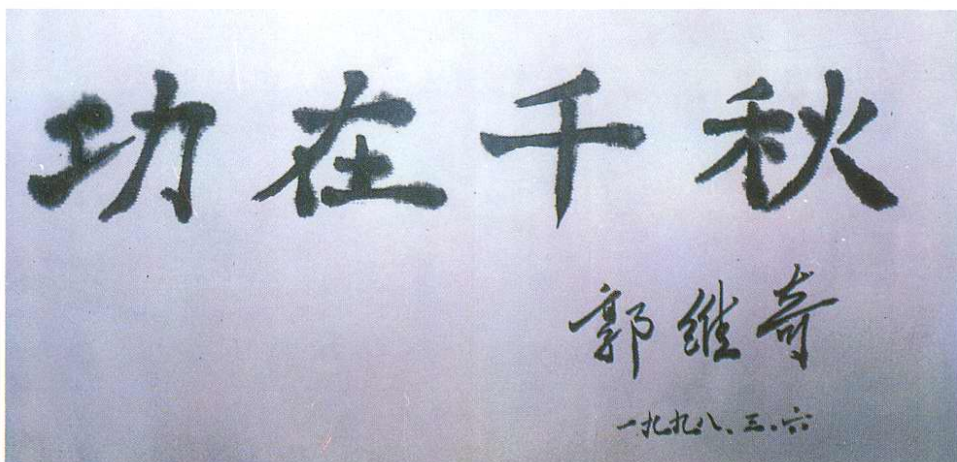 功在千秋
郭维奇
一九九八、三、六